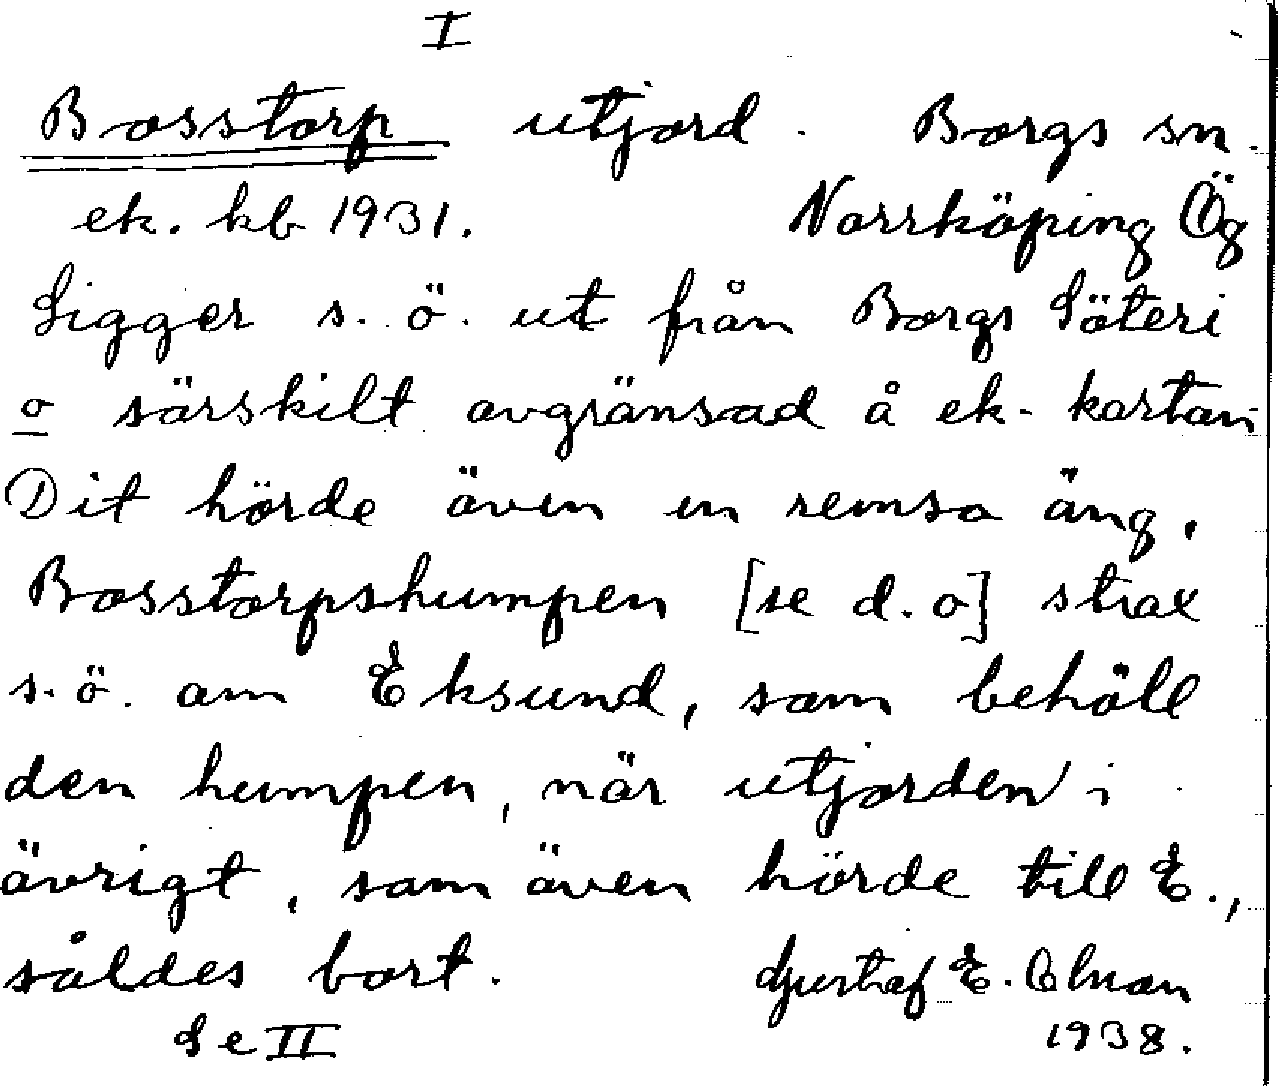 I
Bosstorp utjord. Borgs sn.
ek. kb 1931. Norrköping Ög
Ligger s. ö. ut från Borgs Säteri
o särskilt avgränsad å ek. kartan
Dit hörde även en remsa äng,
Bosstorpshumpen [se d. o] strax
s. ö. om Eksund, som behöll
den humpen, när utjorden i
övrigt, som även hörde till E.,
såldes bort. Gustaf E.
Se II 1938.